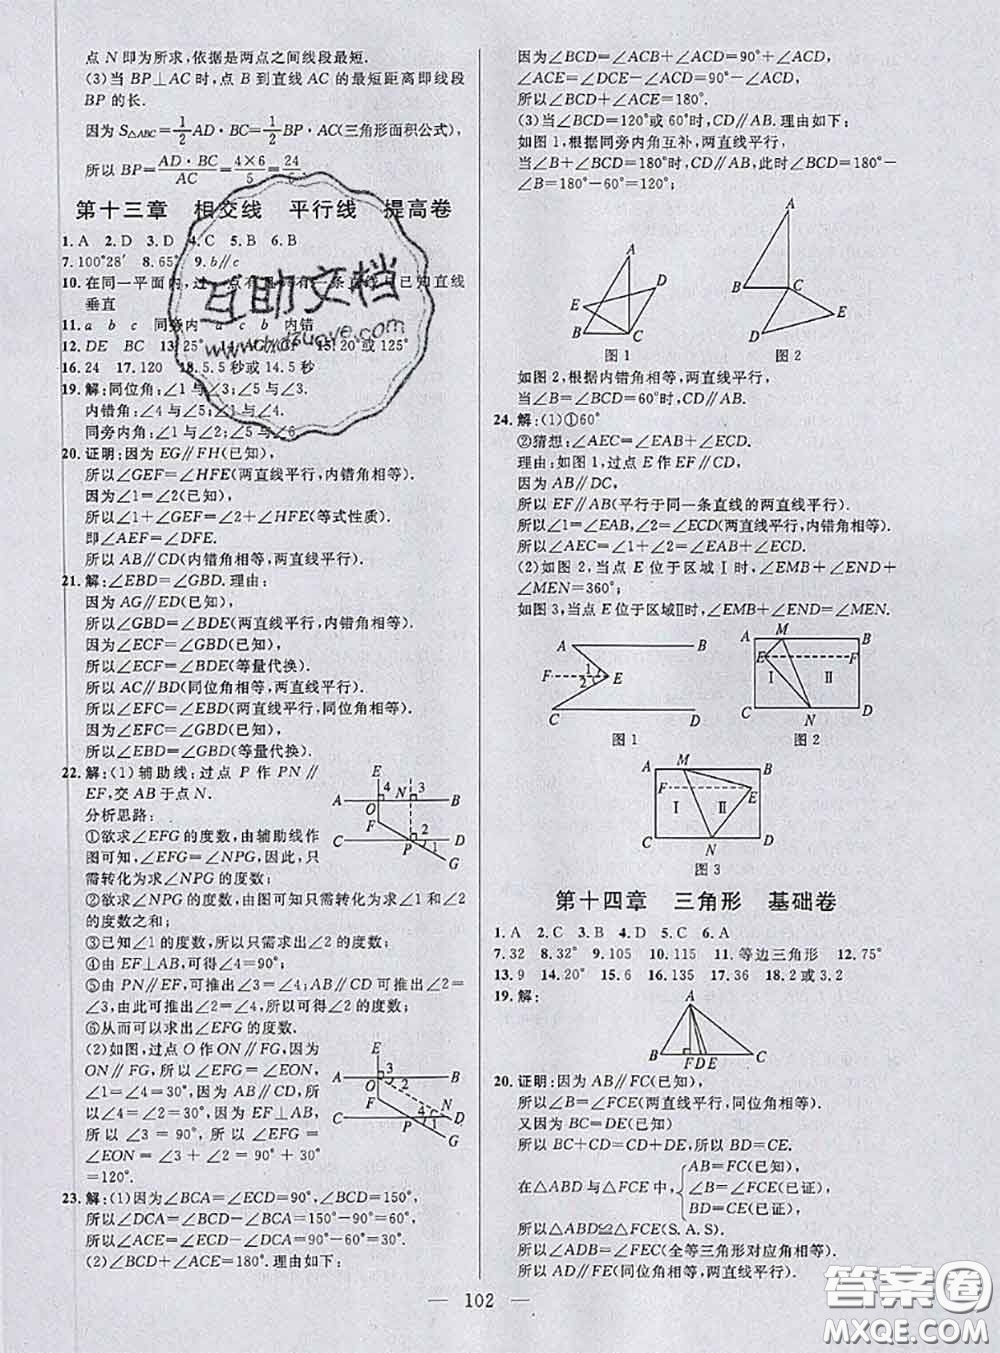 点 N 即为所求,依据是两点之间线段最短.
(3)当 BP⊥AC 时,点 B 到直线 AC 的最短距离即线段
BP 的长.
因为 S△ABC=1/2 AD·BC=1/2 BP·AC(三角形面积公式),
所以 BP=AD·BC/AC=4×6/5=24/5.
第十三章 相交线 平行线 提高卷
1.A 2.D 3.D 4.C 5.B 6.B
7.100°28′ 8.65° 9.b∥c
10.在同一平面内,过一点有且只有一条直线与已知直线
垂直
11.a b c 同旁内 a c b 内错
12.DE BC 13.25° 14.AG∥EF 15.20°或125°
16.24 17.120 18.5.5秒或14.5秒
19.解:同位角:∠1与∠3;∠5与∠3.
内错角:∠4与∠5;∠1与∠4.
同旁内角:∠1与∠2;∠5与∠6.
20.证明:因为 EG∥FH(已知),
所以∠GEF=∠HFE(两直线平行,内错角相等).
因为∠1=∠2(已知),
所以∠1+∠GEF=∠2+∠HFE(等式性质).
即∠AEF=∠DFE.
所以 AB∥CD(内错角相等,两直线平行).
21.解:∠EBD=∠GBD.理由:
因为 AG∥ED(已知),
所以∠GBD=∠BDE(两直线平行,内错角相等).
因为∠ECF=∠GBD(已知),
所以∠ECF=∠BDE(等量代换).
所以 AC∥BD(同位角相等,两直线平行).
所以∠EFC=∠EBD(两直线平行,同位角相等).
因为∠EFC=∠GBD(已知),
所以∠EBD=∠GBD(等量代换).
22.解:(1)辅助线:过点 P 作 PN∥
EF,交 AB 于点 N.
分析思路:
①欲求∠EFG 的度数,由辅助线作
图可知,∠EFG=∠NPG,因此,只
需转化为求∠NPG 的度数;
②欲求∠NPG 的度数,由图可知只需转化为求∠1和∠2
的度数之和;
③已知∠1的度数,所以只需求出∠2的度数;
④由 EF⊥AB,可得∠4=90°;
⑤由 PN∥EF,可推出∠3=∠4;AB∥CD 可推出∠2=
∠3,由此可推出∠2=∠4,所以可得∠2的度数;
⑥从而可以求出∠EFG 的度数.
E 4 N 3
A O B
F 2
C P 1 D
G
(2)如图,过点 O 作 ON∥FG,因为
ON∥FG,所以∠EFG=∠EON,
∠1=∠4=30°,因为 AB∥CD,所
以∠4=∠2=30°,因为 EF⊥AB,
所以∠3=90°,所以∠EFG=
∠EON=∠3+∠2=90°+30°
=120°.
E
A 3 B
O 2
F N
C 4 1 D
P G
23.解:(1)因为∠BCA=∠ECD=90°,∠BCD=150°,
所以∠DCA=∠BCD-∠BCA=150°-90°=60°,
所以∠ACE=∠ECD-∠DCA=90°-60°=30°.
(2)∠BCD+∠ACE=180°.理由如下:
因为∠BCD=∠ACB+∠ACD=90°+∠ACD,
∠ACE=∠DCE-∠ACD=90°-∠ACD,
所以∠BCD+∠ACE=180°.
(3)当∠BCD=120°或60°时,CD∥AB.理由如下:
如图1,根据同旁内角互补,两直线平行,
当∠B+∠BCD=180°时,CD∥AB,此时∠BCD=180°-
∠B=180°-60°=120°;
A
E D
B C
图1
A
B C
E
D
图2
如图2,根据内错角相等,两直线平行,
当∠B=∠BCD=60°时,CD∥AB.
24.解:(1)①60°
②猜想:∠AEC=∠EAB+∠ECD.
理由:如图1,过点 E 作 EF∥CD,
因为 AB∥DC,
所以 EF∥AB(平行于同一条直线的两直线平行).
所以∠1=∠EAB,∠2=∠ECD(两直线平行,内错角相等),
所以∠AEC=∠1+∠2=∠EAB+∠ECD.
(2)如图2,当点 E 位于区域Ⅰ时,∠EMB+∠END+
∠MEN=360°;
如图3,当点 E 位于区域Ⅱ时,∠EMB+∠END=∠MEN.
A B
F 1 2 E
C D
图1
A M B
E F
Ⅰ Ⅱ
C N D
图2
A M B
F E
Ⅰ Ⅱ
C N D
图3
第十四章 三角形 基础卷
1.A 2.C 3.B 4.D 5.C 6.A
7.32 8.32° 9.105 10.115 11.等边三角形 12.75°
13.9 14.20° 15.6 16.135 17.36 18.2或3.2
19.解:
A
B F D E C
20.证明:因为 AB∥FC(已知),
所以∠B=∠FCE(两直线平行,同位角相等).
又因为 BC=DE(已知)
所以 BC+CD=CD+DE,所以 BD=CE.
在△ABD 与△FCE 中,{AB=FC(已知),
∠B=∠FCE(已证),
BD=CE(已证),
所以△ABD≌△FCE(S.A.S).
所以∠ADB=∠FEC(全等三角形对应角相等).
所以 AD∥FE(同位角相等,两直线平行).
— 102 —
互助文档
答案圈
MXQE.COM